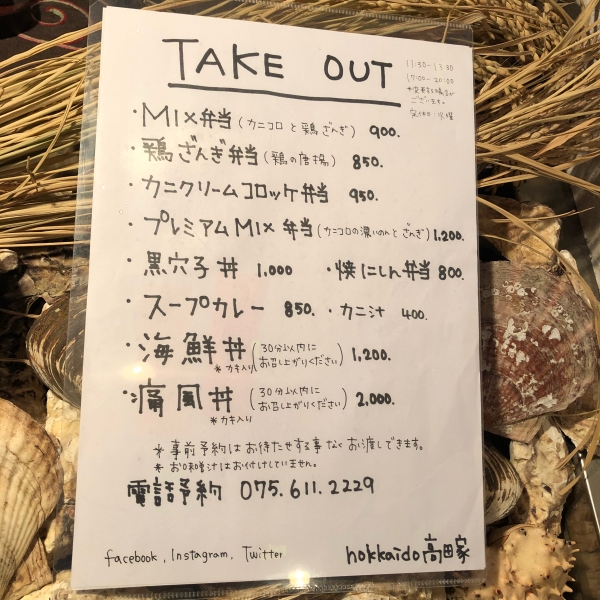 TAKE OUT
11:30-13:30
17:00-20:00
*変更する場合が
ございます。
定休日:火曜
・MIX弁当(カニコロと鶏ざんぎ) 900.
・鶏ざんぎ弁当(鶏の唐揚) 850.
・カニクリームコロッケ弁当 950.
・プレミアムMIX弁当(カニコロの濃いめんとざんぎ) 1,200.
・黒穴子丼 1,000 ・焼にしん弁当 800.
・スープカレー 850. ・カニ汁 400.
・海鮮丼(30分以内にお召し上がりください) 1,200.
*カキ入り
・痛風丼(30分以内にお召し上がりください) 2,000.
*カキ入り
*事前予約はお待たせする事なくお渡しできます。
*お味噌汁はお付けしていません。
電話予約 075.611.2229
facebook, Instagram, Twitter
hokkaido高田家